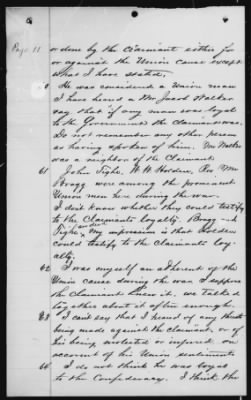 Page 11
or done by the Claimant either for
or against the Union cause except
what I have stated,
He was considered a Union man
I have heard a Mr Jacob Walker
say that if any man was loyal
to the Government the claimant was.
Do not remember any other person
as having spoken of him. Mr Walker
was a neighbor of the Claimant.
61 John Tighe, W. W. Holden, Rev Mr
Bragg were among the prominent
Union men here during the war.
I dont know whether they could testify
to the Claimants loyalty. Bragg
Tighe, My impression is that Holden
could testify to the Claimants loy-
alty.
62 I was myself an adherent of the
Union cause during the war. I suppose
the Claimant knew it, we talked
together about it often enough.
63 I cant say that I heard of any threats
being made against the claimant, or of
his being molested or injured on
account of his Union sentiments
64 I do not think he was loyal
to the Confederacy. I think the